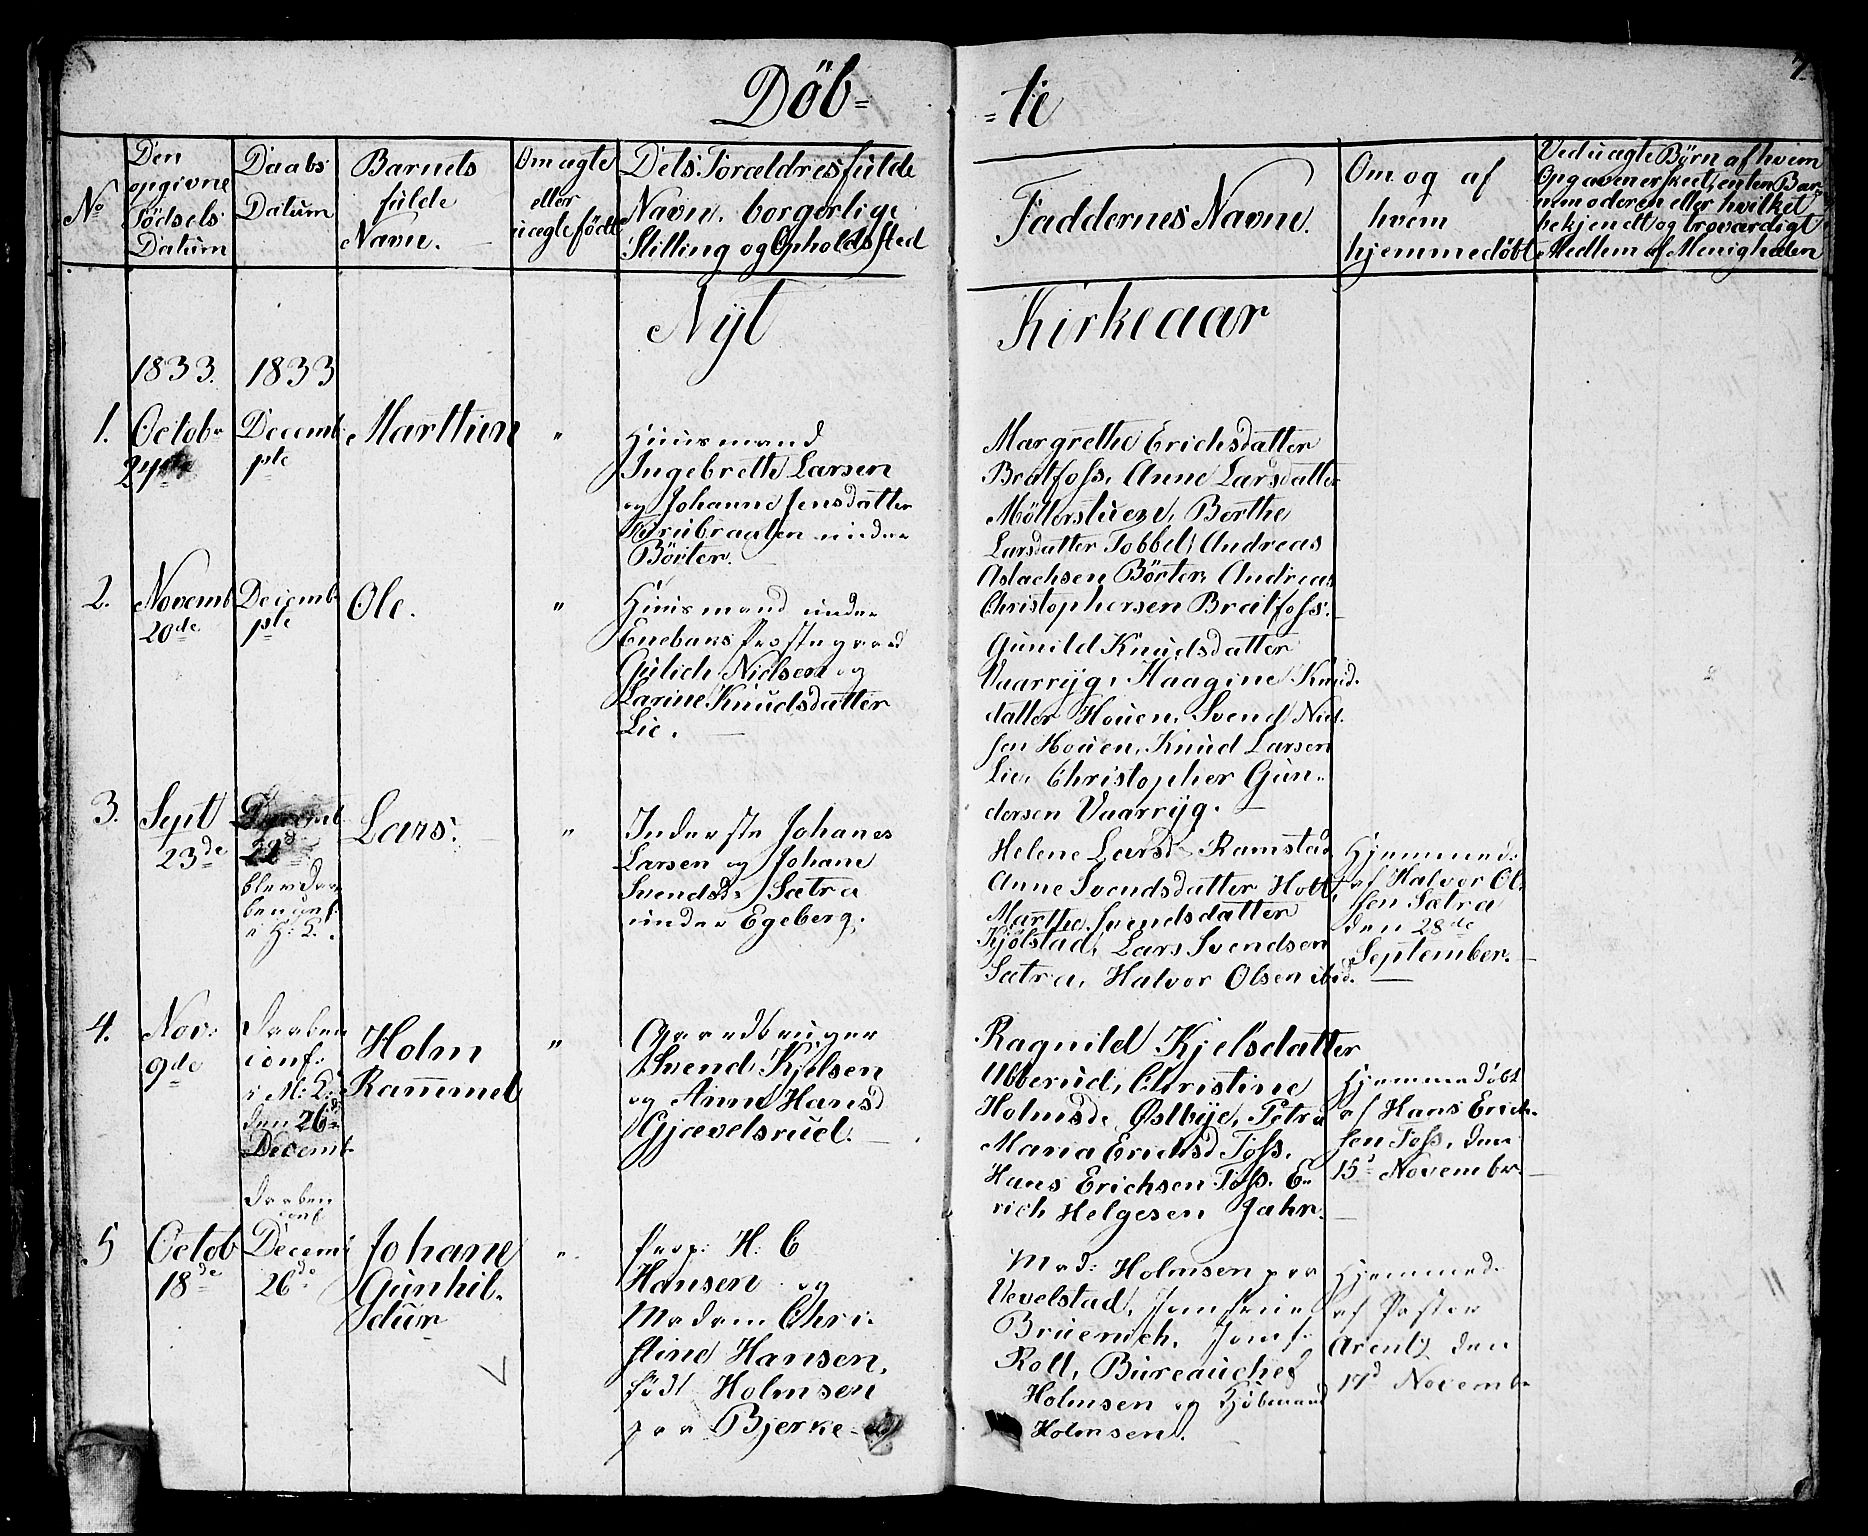 7
Döb= =te
No
Den
opgivne
Födsels
Datum
Daabs
Datum
Barnets
fulde
Navn.
Om ægte
eller
uægte födt
Dets Forældres fulde
Navn, borgerlige
Stilling og Opholdssted
Faddernes Navne.
Om og af
hvem
hjemmedöbt
Ved uægte Börn af hvem
Opgaven er skeet, enten Bar=
nemoderen eller hvilket
bekjendt og troværdigt
Medlem af Menigheden
Nyt Kirkeaar
1833. 1833
1.
Octobr
24de
Decemb
1ste
Marthen
"
Huusmand
Ingebreth Larsen
og Johanne Jensdatter
under
Börter.
Margrethe Erichsdatter
Bratfoss, Anne Larsdatter
Möllerstuene, Berthe
Larsdatter Tobbel, Andreas
Aslachsen Börter, Andreas
Christophersen Bratfoss.
2.
Novemb
20de
Decemb
1ste
Ole.
"
Huusmand under
Enebaks Præstegaard
Gulich Nielsen og
Karine Knudsdatter
Lie.
Gunild Knudsdatter
Vaarryg, Haagine Knud.
datter Houen, Svend Niel.
sen Houen, Knud Larsen
Lie, Christopher Gun..
dersen Vaarryg.
3.
Sept
23de
Decemb
22d
blev Daa
ben conf.
i H: K.
Lars.
"
Inderste Johanes
Larsen og Johane
Svendsd. Sætra
under Egeberg.
Helene Larsd. Ramstad
Anne Svendsdatter Holt,
Marthe Svendsdatter
Kjölstad, Lars Svendsen
Sætra, Halvor Olsen ibid.
Hjemmed:
af Halvor Ol.
sen Sætra
den 28de
September.
4.
Nov:
9de
Daaben
conf.
i M: K:
den 26d
Decemb
Holm
Rammel
"
Gaardbruger
Svend Kjelsen
og Anne Hansd
Gjævelsrud.
Ragnild Kjelsdatter
Ubberud, Christine
Holmsd. Østbye, Petra
Maria Erichsd Foss.
Hans Erichsen Foss. E=
rich Helgesen Jahr.
Hjemmedöbt
af Hans Erich.
sen Foss, den
15d Novembr
5
Octob
18de
Daaben
conf
Decemb
26de
Johane
Gunhil.
dur
"
Prop: H: C
Hansen og
Madam Chri.
stine Hansen,
födt Holmsen
paa Bjerke
Mad: Holmsen paa
Vevelstad, Jomfrue
Bruenich, Jomf.
Roll, Bureauchef
Holmsen og Kjöbmand
Holmsen.
Hjemmed.
af Pastor
Arentz den
17d Novemb.